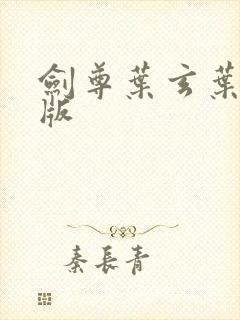 劍尊葉玄葉
版
秦長青